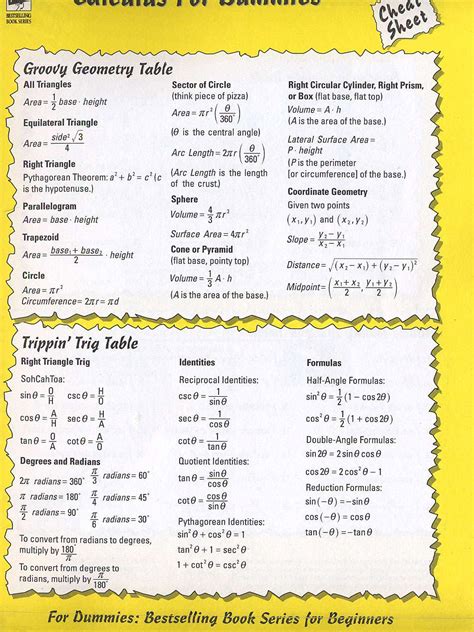 Calculus For Dummies
BESTSELLING
BOOK SERIES
Cheat
Sheet
Groovy Geometry Table
All Triangles
Area = 1/2 base · height
Equilateral Triangle
Area = side² √3 / 4
Right Triangle
Pythagorean Theorem: a² + b² = c² (c
is the hypotenuse.)
Parallelogram
Area = base · height
Trapezoid
Area = base₁ + base₂ / 2 · height
Circle
Area = πr²
Circumference = 2πr = πd
Sector of Circle
(think piece of pizza)
Area = πr² (θ / 360°)
(θ is the central angle)
Arc Length = 2πr (θ / 360°)
(Arc Length is the length
of the crust.)
Sphere
Volume = 4/3 πr³
Surface Area = 4πr²
Cone or Pyramid
(flat base, pointy top)
Volume = 1/3 A · h
(A is the area of the base.)
Right Circular Cylinder, Right Prism,
or Box (flat base, flat top)
Volume = A · h
(A is the area of the base.)
Lateral Surface Area =
P · height
(P is the perimeter
[or circumference] of the base.)
Coordinate Geometry
Given two points
(x₁, y₁) and (x₂, y₂)
Slope = y₂ − y₁ / x₂ − x₁
Distance = √(x₂ − x₁) + (y₂ − y₁)²
Midpoint = (x₁ + x₂ / 2, y₁ + y₂ / 2)
Trippin' Trig Table
Right Triangle Trig
SohCahToa:
sin θ = O/H csc θ = H/O
cos θ = A/H sec θ = H/A
tan θ = O/A cot θ = A/O
Degrees and Radians
2π radians = 360° π/3 radians = 60°
π radians = 180° π/4 radians = 45°
π/2 radians = 90° π/6 radians = 30°
To convert from radians to degrees,
multiply by 180°/π
To convert from degrees to
radians, multiply by π/180°
Identities
Reciprocal Identities:
csc θ = 1 / sin θ
sec θ = 1 / cos θ
cot θ = 1 / tan θ
Quotient Identities:
tan θ = sin θ / cos θ
cot θ = cos θ / sin θ
Pythagorean Identities:
sin² θ + cos² θ = 1
tan² θ + 1 = sec² θ
1 + cot² θ = csc² θ
Formulas
Half-Angle Formulas:
sin² θ = 1/2 (1 − cos 2θ)
cos² θ = 1/2 (1 + cos 2θ)
Double-Angle Formulas:
sin 2θ = 2 sin θ cos θ
cos 2θ = 2 cos² θ − 1
Reduction Formulas:
sin(−θ) = −sin θ
cos(−θ) = cos θ
tan(−θ) = −tan θ
For Dummies: Bestselling Book Series for Beginners